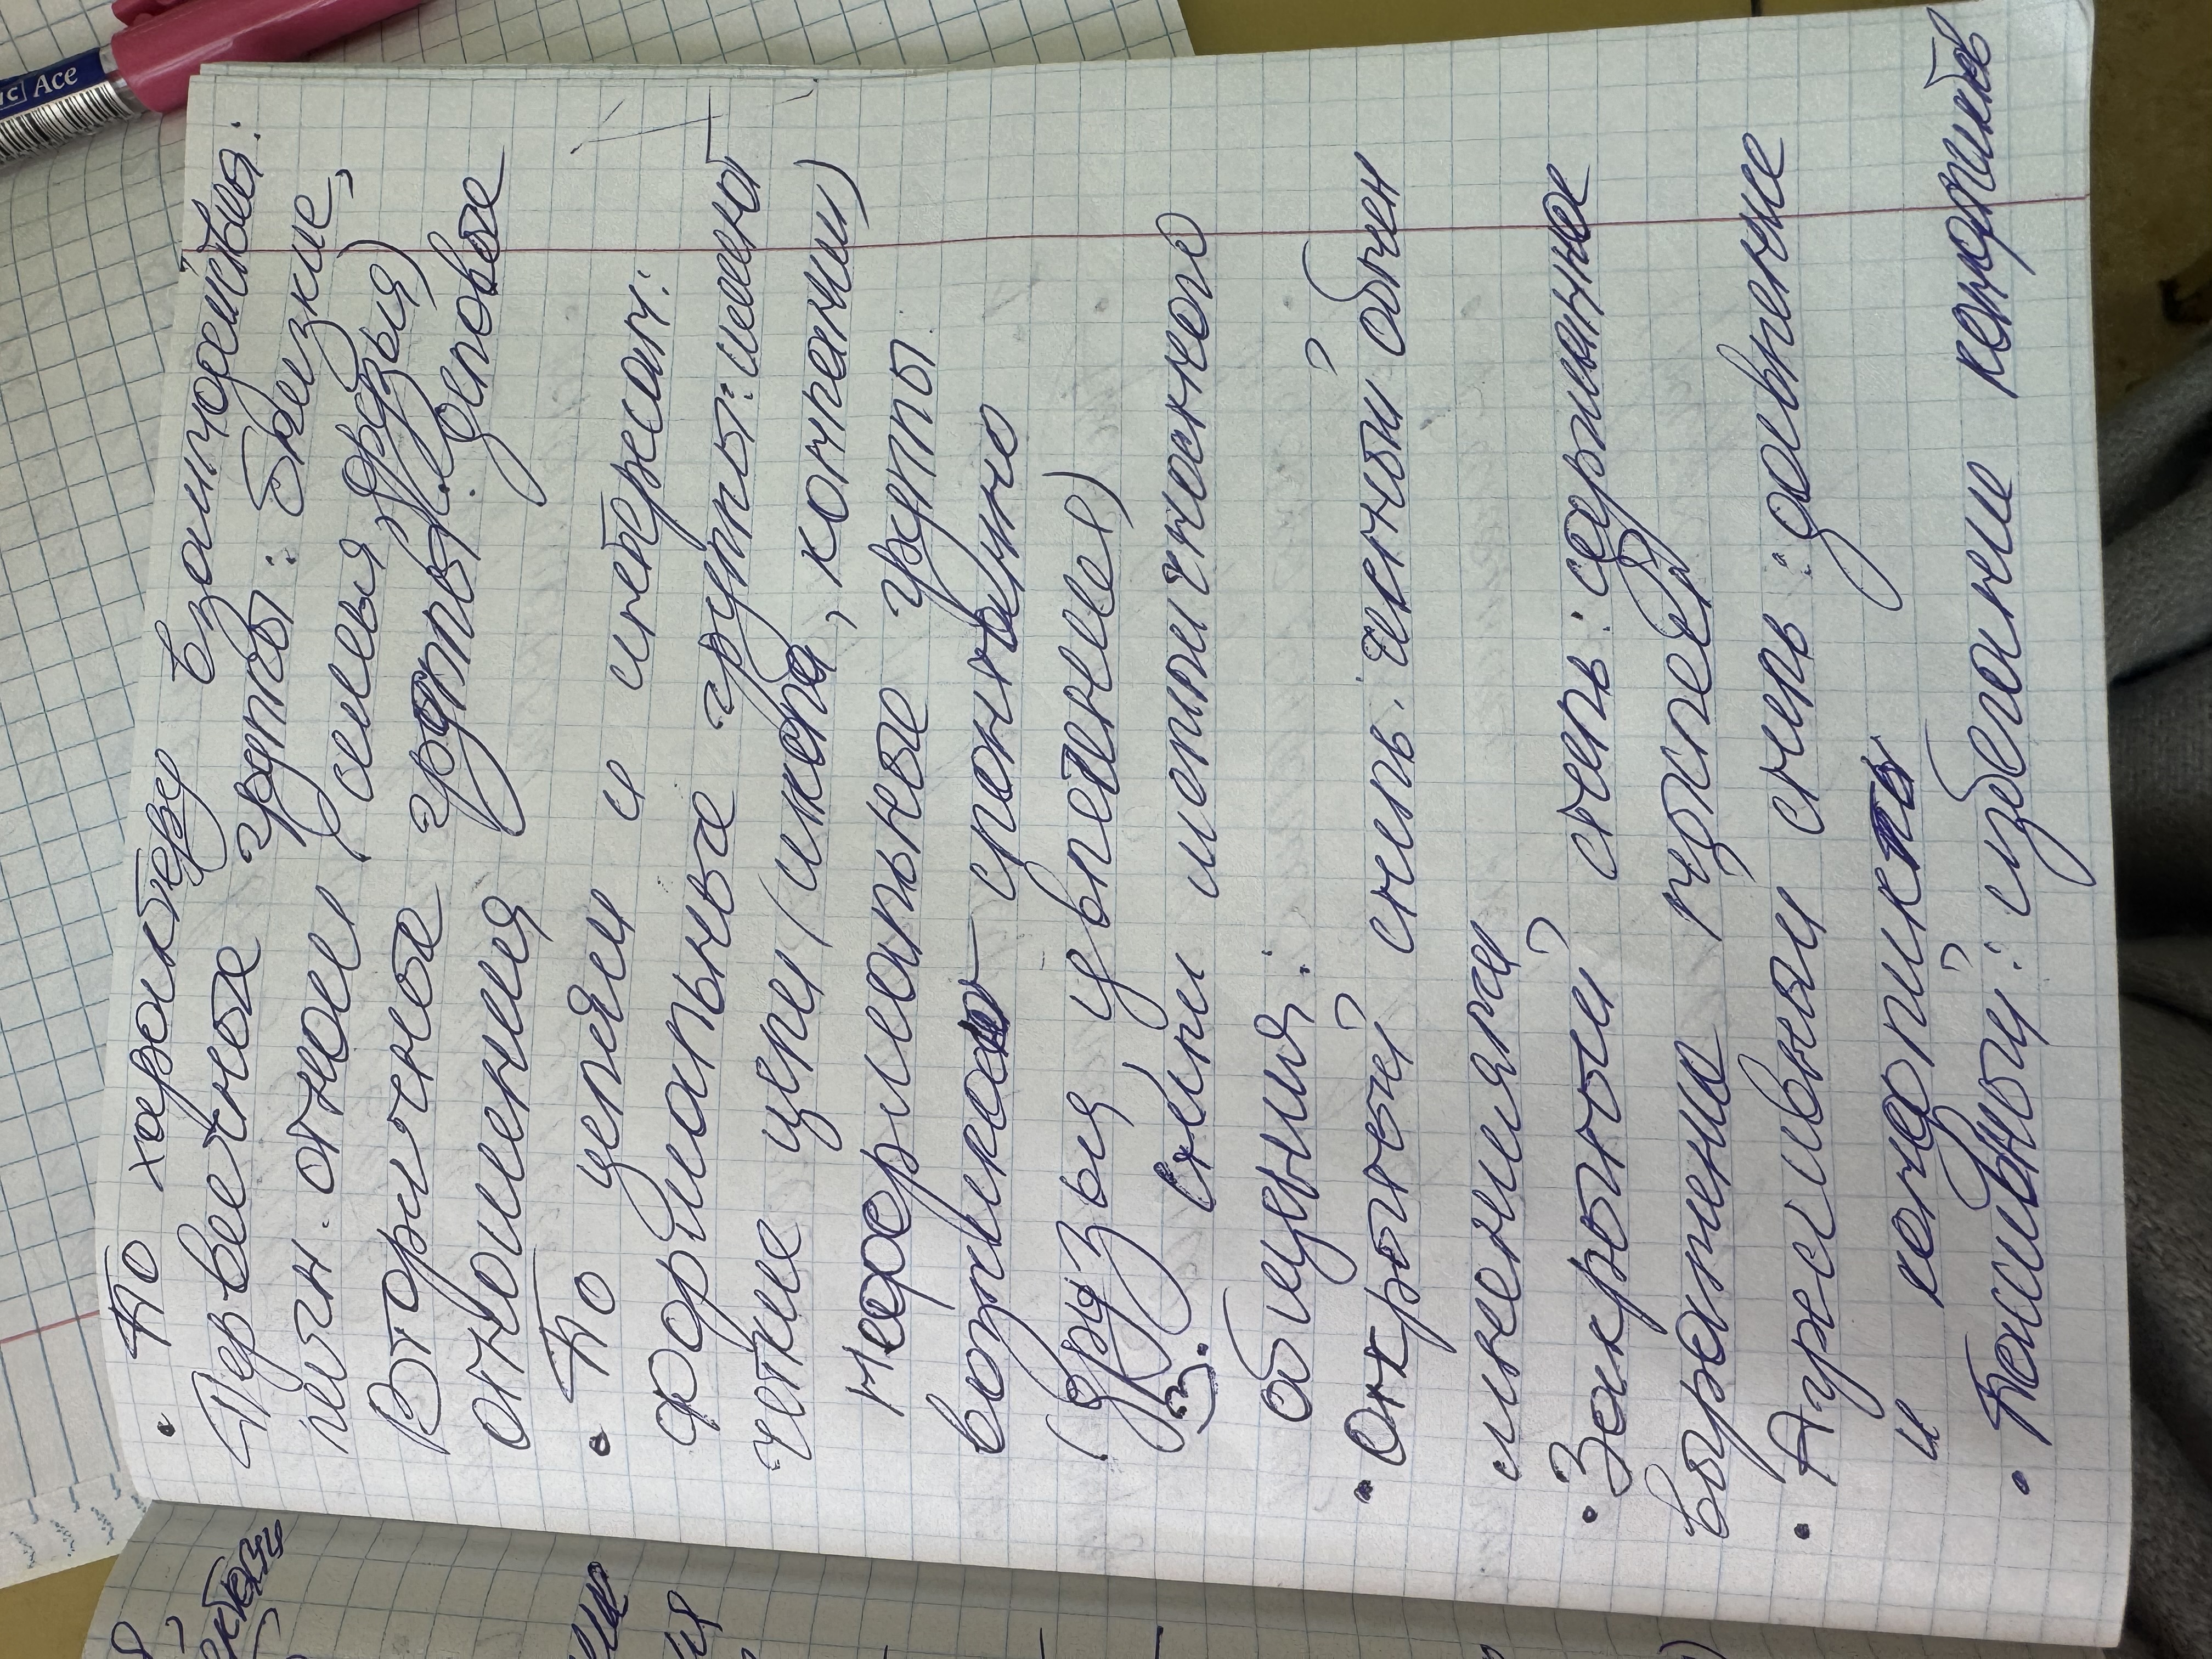 • По характеру взаимодейств:
Первичные группы: близкие,
личн. отнош (семья, друзья)
Вторичные группы: деловые
отношения
• По целям и интересам:
формальные группы: имеют
четкие цели (школа, компании)
Неформальные группы
возникают спонтанно
(друзья, увлечения)
3. Стили межличностного
общения:
• Открытый стиль: честный обмен
мнениями
• Закрытый стиль: сдержанное
выражение мыслей
• Агрессивный стиль: давление
и конфликты
• Пассивный: избегание конфликтов
Ace